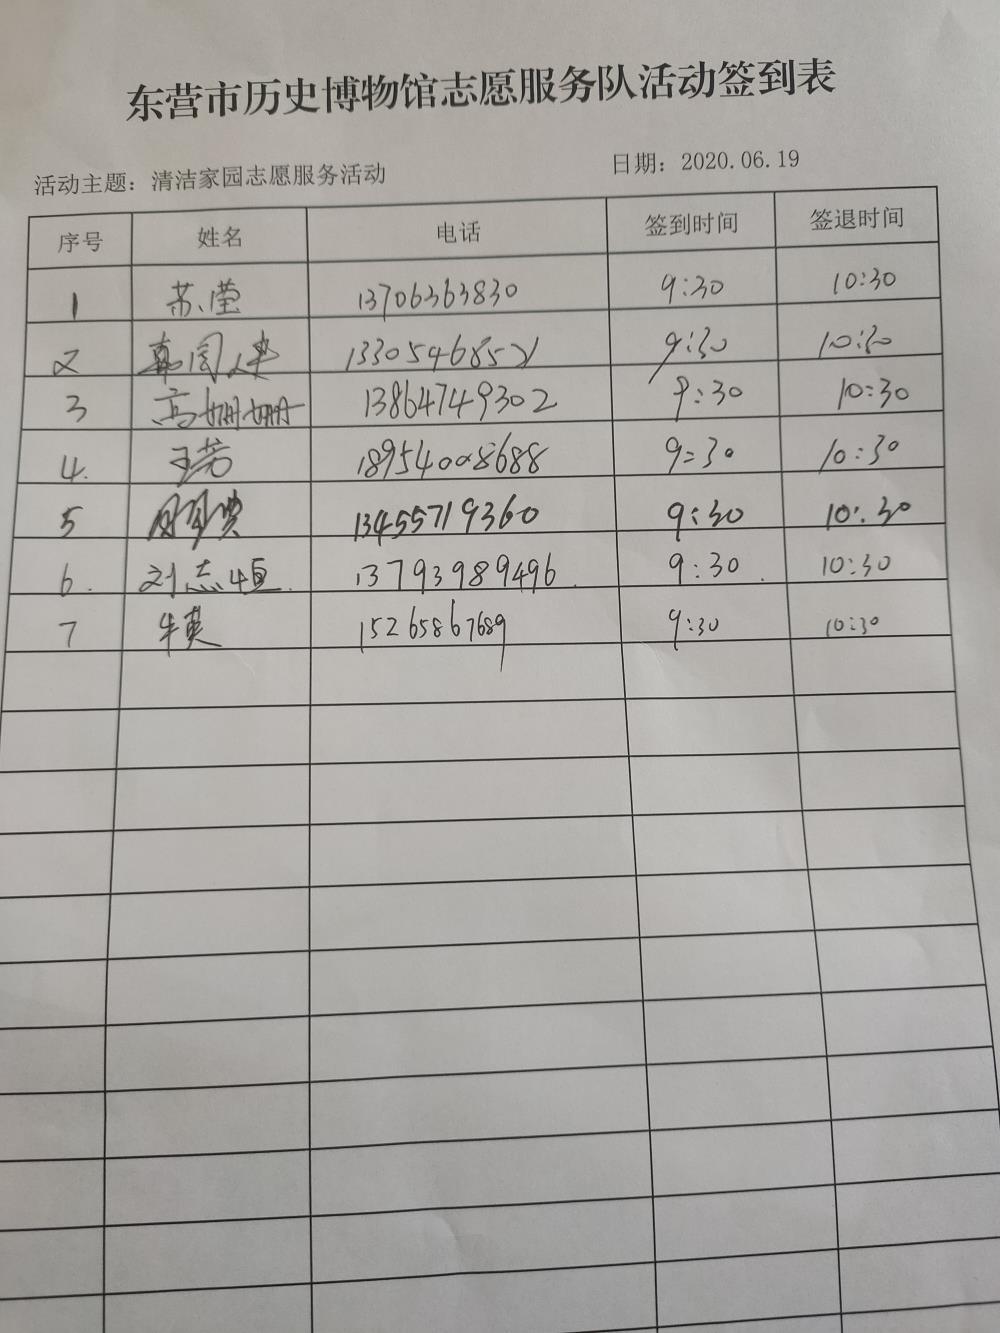 东营市历史博物馆志愿服务队活动签到表
活动主题：清洁家园志愿服务活动 日期：2020.06.19
序号 姓名 电话 签到时间 签退时间
1 苏滢 13706363830 9:30 10:30
2 13305468521 9:30 10:30
3 高姗姗 13864749302 9:30 10:30
4. 王芳 18954008688 9:30 10:30
5 13455719360 9:30 10:30
6. 刘志恒. 13793989496. 9:30. 10:30
7 牛英 15265867689 9:30 10:30